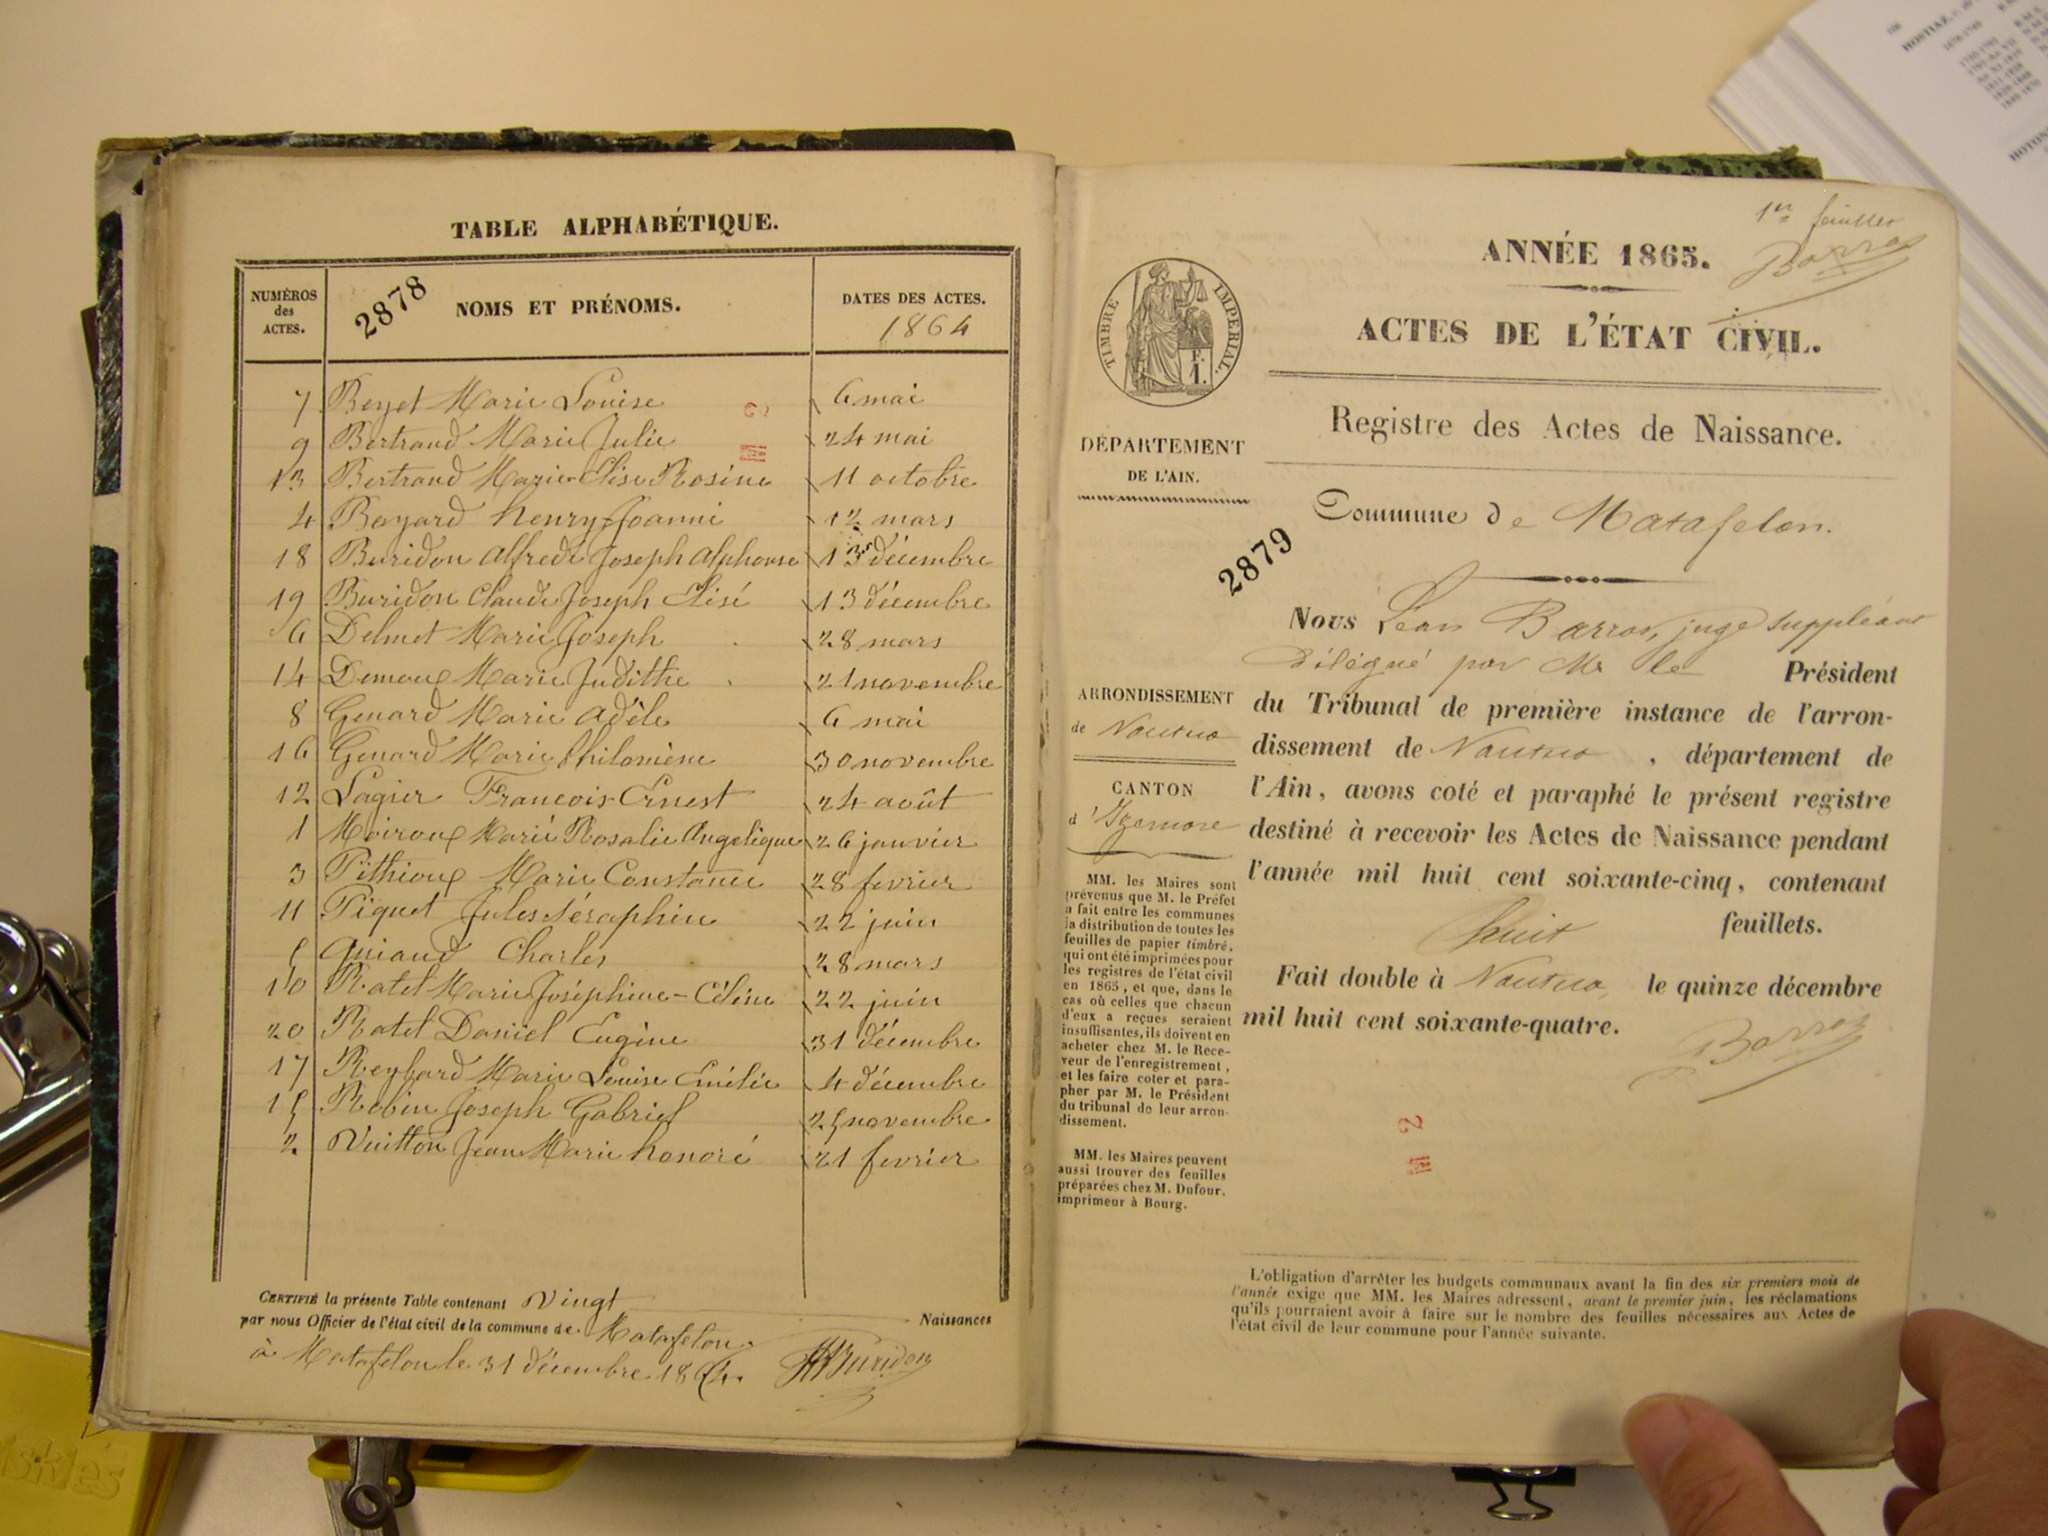 TABLE ALPHABÉTIQUE.
NUMÉROS des ACTES.
2878
NOMS ET PRÉNOMS.
DATES DES ACTES.
1864
7 Beyet Marie Louise 6 mai
9 Bertrand Marie Julie 24 mai
13 Bertrand Marie Elise Rosine 11 octobre
4 Bayard henry Joanni 12 mars
18 Buridon Alfred Joseph Alphonse 13 décembre
19 Buridon Claude Joseph Elisé 13 décembre
6 Delmet Marie Joseph 28 mars
14 Demoux Marie Judithe 21 novembre
8 Genard Marie Adèle 6 mai
16 Genard Marie Philomène 30 novembre
12 Lagier Francois Ernest 24 août
1 Moiroux Marie Rosalie Angelique 26 janvier
3 Pithioux Marie Constance 28 fevrier
11 Piquet Jules Séraphin 22 juin
5 Guiaud Charles 28 mars
10 Ratel Marie Joséphine-Céline 22 juin
20 Ratel Daniel Eugène 31 décembre
17 Reybard Marie Louise Emélie 4 décembre
15 Robin Joseph Gabriel 25 novembre
2 Vuitton Jean Marie honoré 21 fevrier
CERTIFIÉ la présente Table contenant Vingt
Naissances
par nous Officier de l'état civil de la commune de Matafelon
à Matafelon le 31 décembre 1864.
Buridon
1er feuillet
Barros
ANNÉE 1865.
ACTES DE L'ÉTAT CIVIL.
TIMBRE IMPERIAL.
F. 1.
DÉPARTEMENT
DE L'AIN.
Registre des Actes de Naissance.
Commune de Matafelon.
2879
ARRONDISSEMENT
de Nantua
CANTON
d'Izernore
MM. les Maires sont
prévenus que M. le Préfet
a fait entre les communes
la distribution de toutes les
feuilles de papier timbré,
qui ont été imprimées pour
les registres de l'état civil
en 1865, et que, dans le
cas où celles que chacun
d'eux a reçues seraient
insuffisantes, ils doivent en
acheter chez M. le Rece-
veur de l'enregistrement,
et les faire coter et para-
pher par M. le Président
du tribunal de leur arron-
dissement.
MM. les Maires peuvent
aussi trouver des feuilles
préparées chez M. Dufour,
imprimeur à Bourg.
Nous Léon Barros, juge suppléant
délégué par Mr le Président
du Tribunal de première instance de l'arron-
dissement de Nantua, département de
l'Ain, avons coté et paraphé le présent registre
destiné à recevoir les Actes de Naissance pendant
l'année mil huit cent soixante-cinq, contenant
huit feuillets.
Fait double à Nantua, le quinze décembre
mil huit cent soixante-quatre.
Barros
L'obligation d'arrêter les budgets communaux avant la fin des six premiers mois de
l'année exige que MM. les Maires adressent, avant le premier juin, les réclamations
qu'ils pourraient avoir à faire sur le nombre des feuilles nécessaires aux Actes de
l'état civil de leur commune pour l'année suivante.